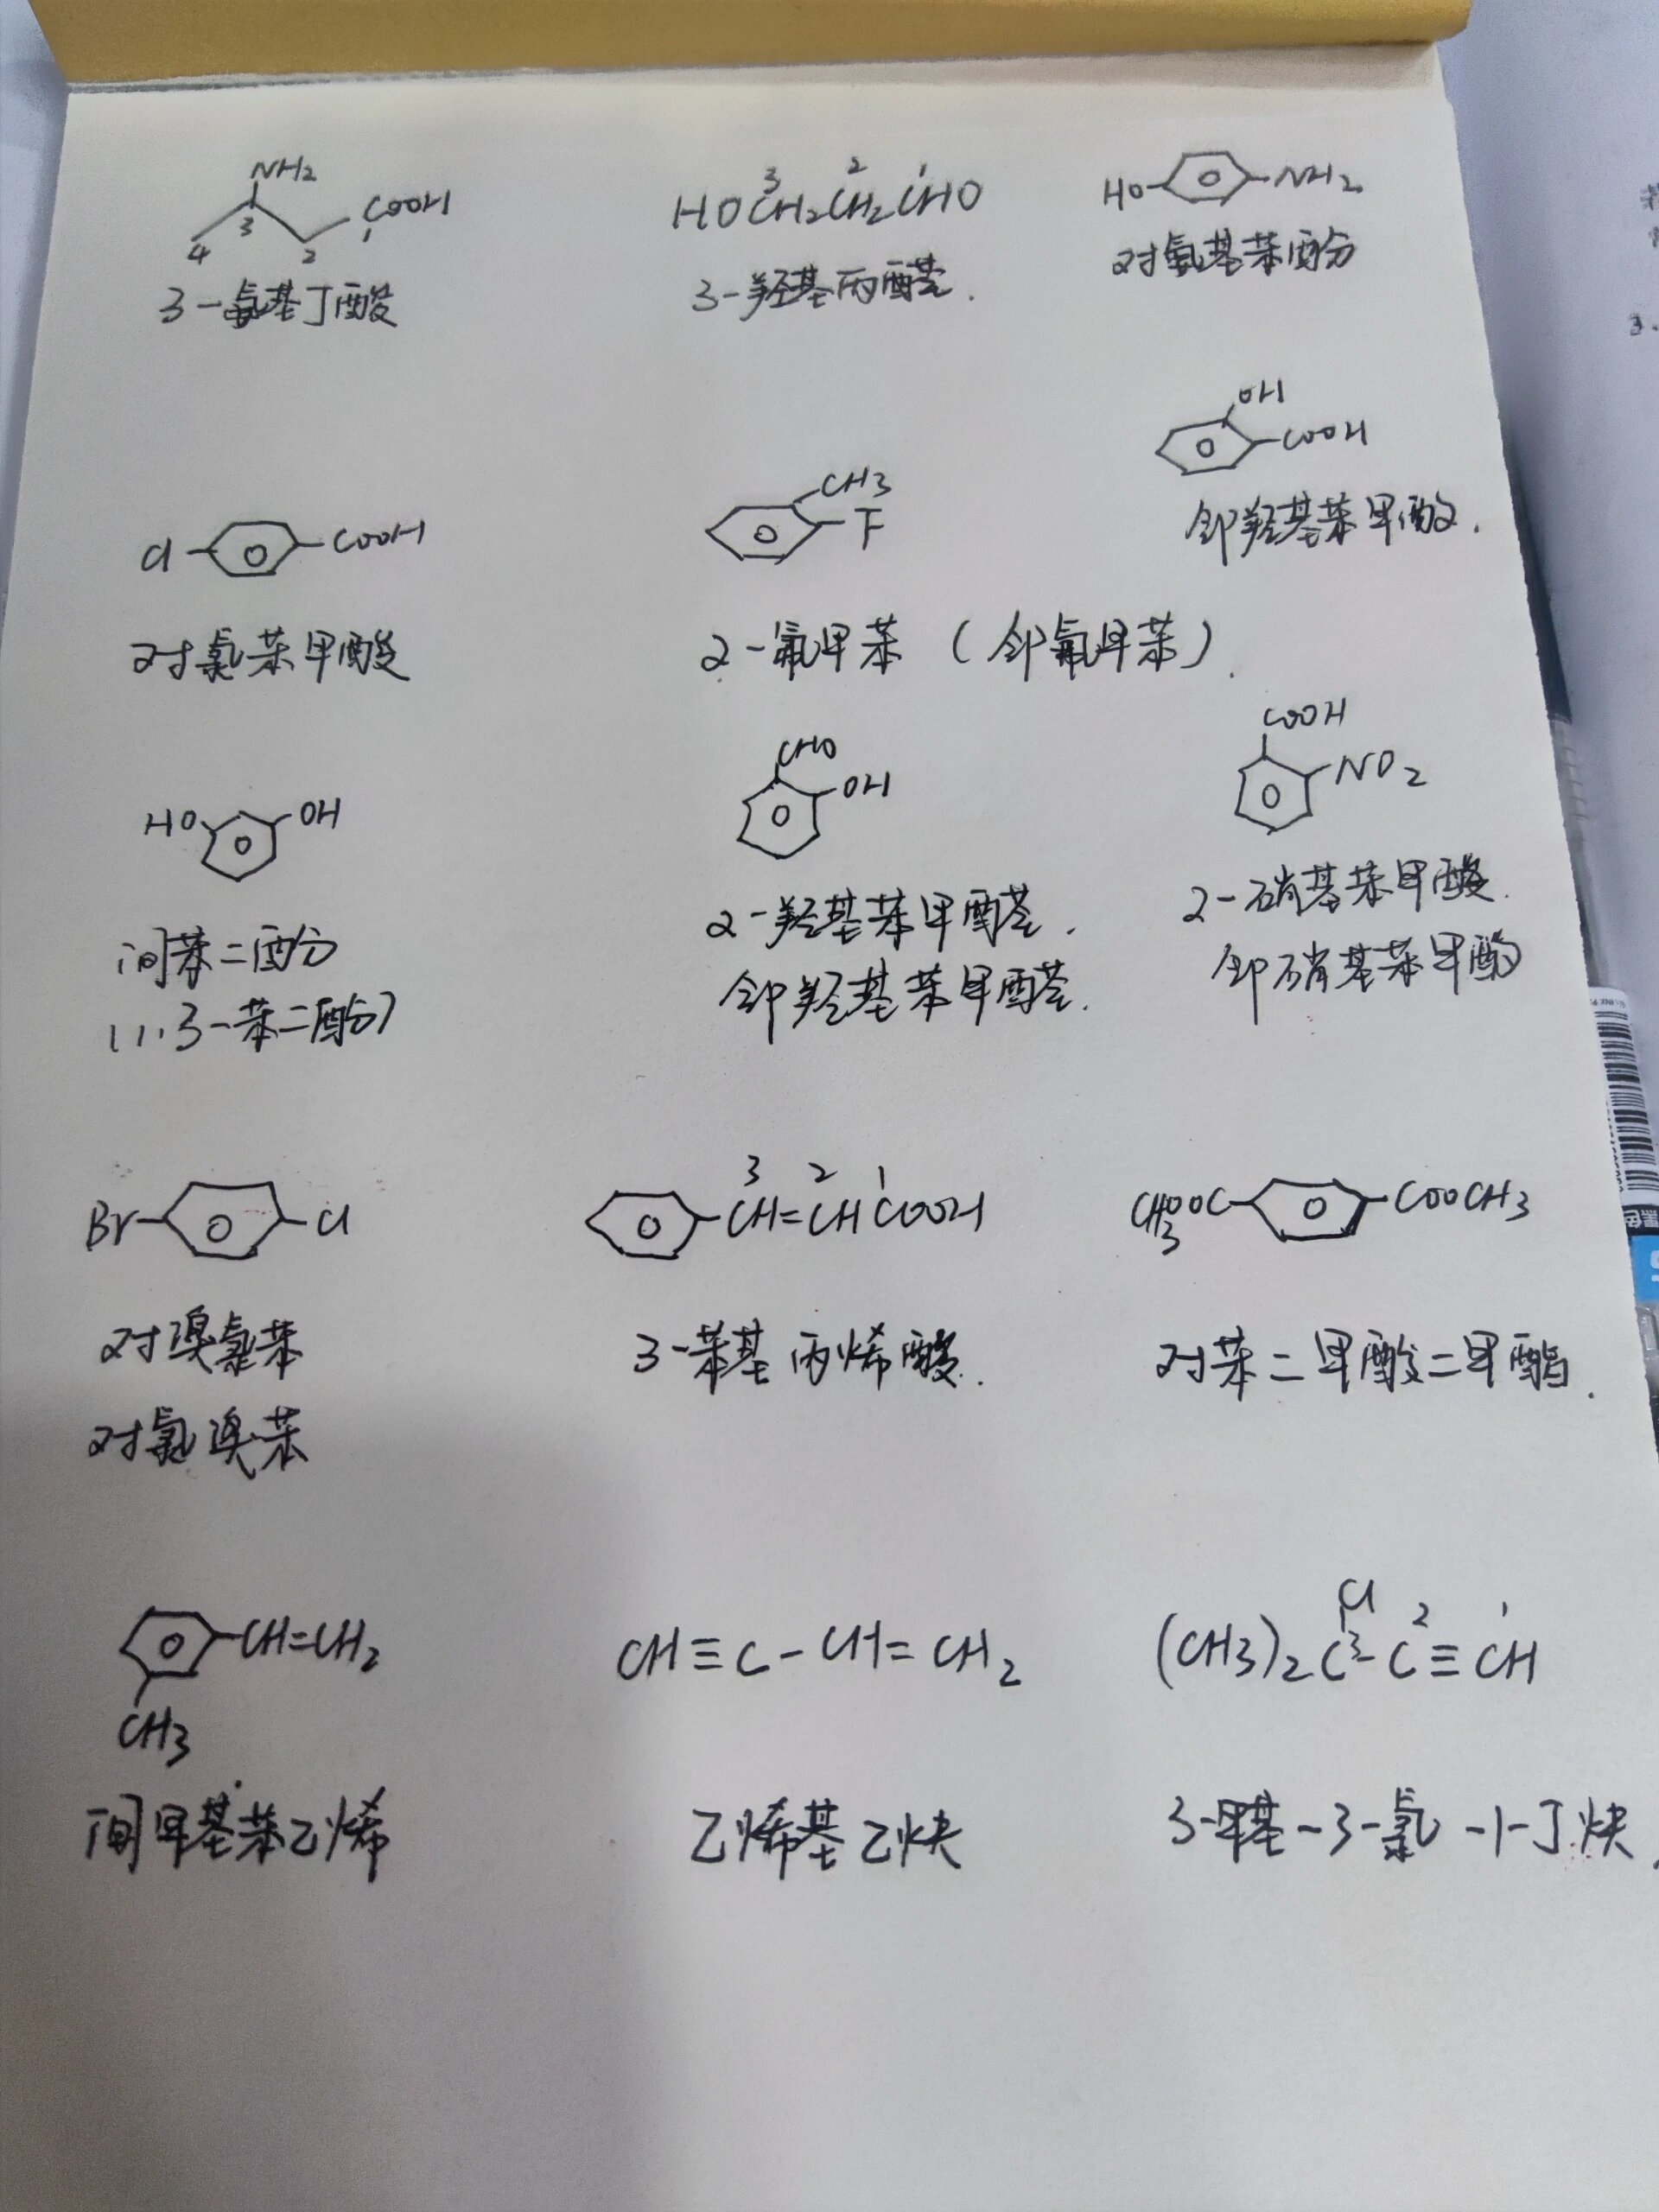 NH2
COOH
4 3 2 1
3-氨基丁酸
3 2 1
HOCH2CH2CHO
3-羟基丙醛.
HO NH2
对氨基苯酚
OH
COOH
邻羟基苯甲酸.
Cl COOH
对氯苯甲酸
CH3
F
2-氟甲苯 (邻氟甲苯).
HO OH
间苯二酚
(1,3-苯二酚)
CHO
OH
2-羟基苯甲醛.
邻羟基苯甲醛.
COOH
NO2
2-硝基苯甲酸.
邻硝基苯甲酸
Br Cl
对溴氯苯
对氯溴苯
3 2 1
CH=CHCOOH
3-苯基丙烯酸.
CH3OOC COOCH3
对苯二甲酸二甲酯.
CH=CH2
CH3
间甲基苯乙烯
CH≡C-CH=CH2
乙烯基乙炔
Cl
3 2 1
(CH3)2C-C≡CH
3-甲基-3-氯-1-丁炔.
黑色